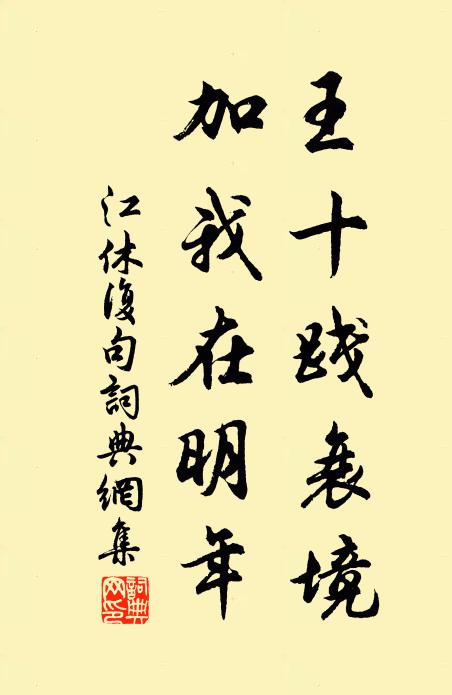 王十践衰境
加我在明年
江休復句詞典網集
詞典
网印